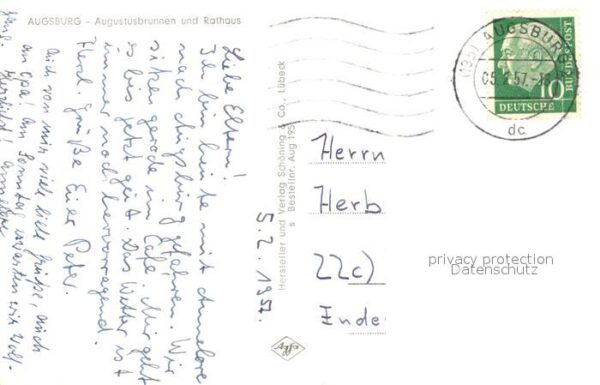 AUGSBURG - Augustusbrunnen und Rathaus
5.2.1957.
Liebe Eltern!
Ich bin heute mit Annelore
nach Augsburg gefahren. Wir
sitzen gerade im Café. Mir geht
es bis jetzt gut. Das Wetter ist
immer noch hervorragend.
Herzl. Grüße Euer Peter.
Auch von mir viele liebe Grüße, auch
an Opa! Am Sonntag
Annelore
Hersteller und Verlag Schöning & Co., Lübeck
s Bestellnr. Aug 195
Agfa
AUGSBURG
57
dc
10
DEUTSCHE
BUNDESPOST
Herrn
Herb
22c)
Inde
privacy protection
Datenschutz